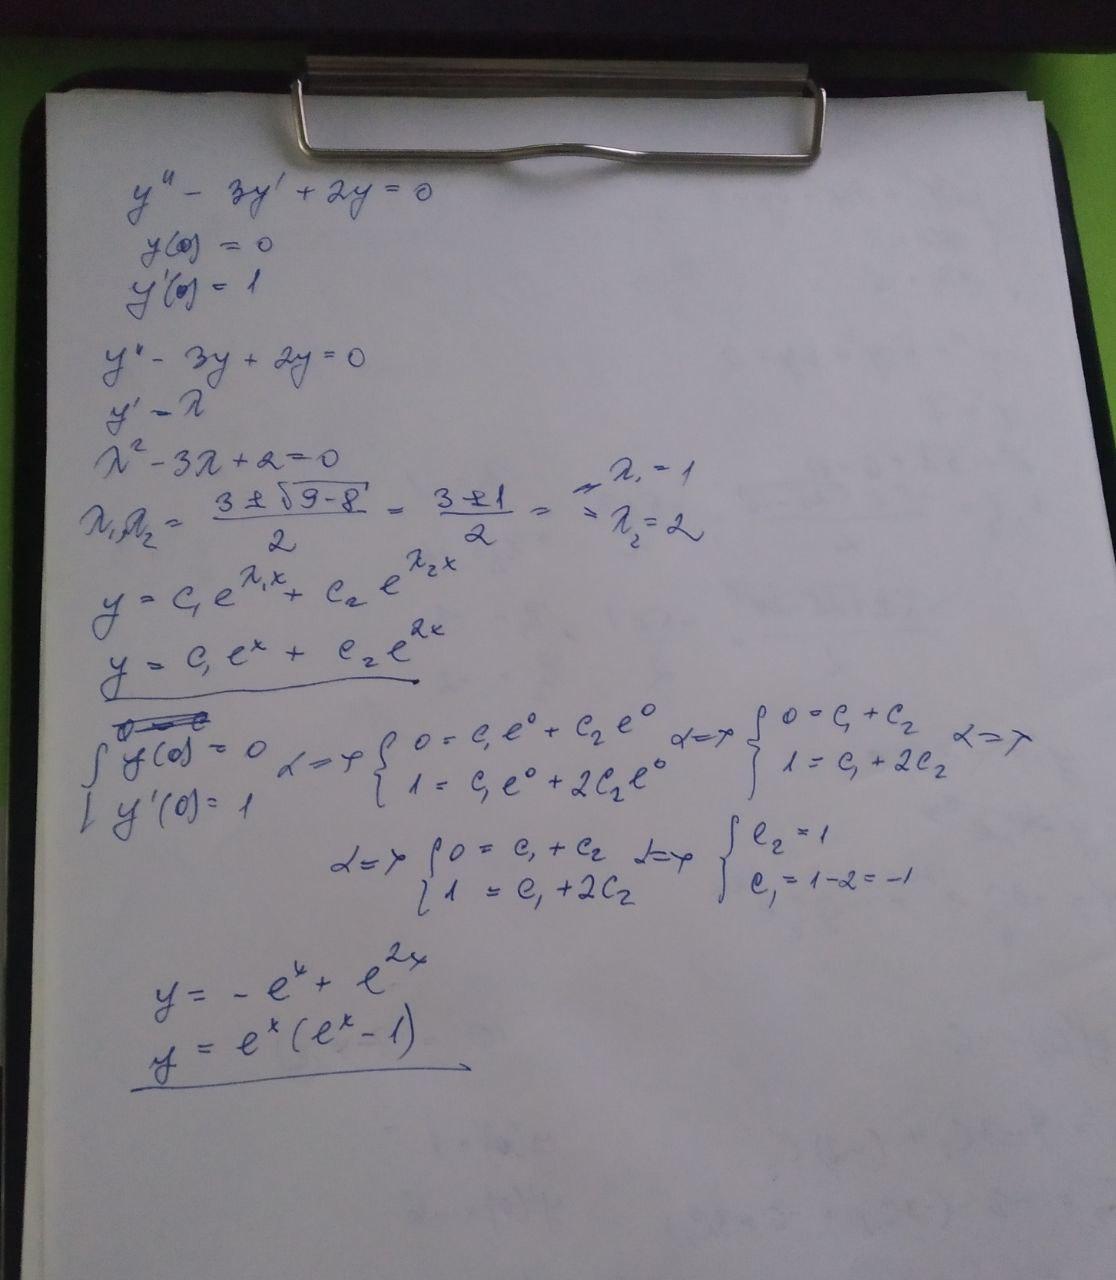 y'' - 3y' + 2y = 0
y(0) = 0
y'(0) = 1
y'' - 3y + 2y = 0
y' = λ
λ² - 3λ + 2 = 0
λ₁,λ₂ = (3 ± √(9-8))/2 = (3 ± 1)/2 = λ₁ = 1
= λ₂ = 2
y = C₁e^(λ₁x) + C₂e^(λ₂x)
y = C₁e^x + C₂e^(2x)
{ y(0) = 0 <=> { 0 = C₁e⁰ + C₂e⁰ <=> { 0 = C₁ + C₂ <=>
y'(0) = 1 1 = C₁e⁰ + 2C₂e⁰ 1 = C₁ + 2C₂
<=> { 0 = C₁ + C₂ <=> { C₂ = 1
1 = C₁ + 2C₂ C₁ = 1-2 = -1
y = -e^x + e^(2x)
y = e^x(e^x - 1)